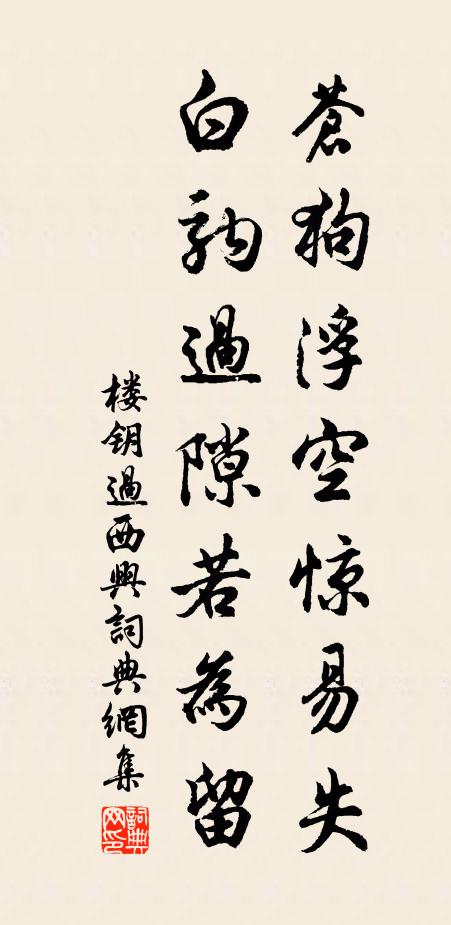 蒼狗浮空惊易失
白駒過隙若為留
楼钥過西興詞典網集
詞典网印